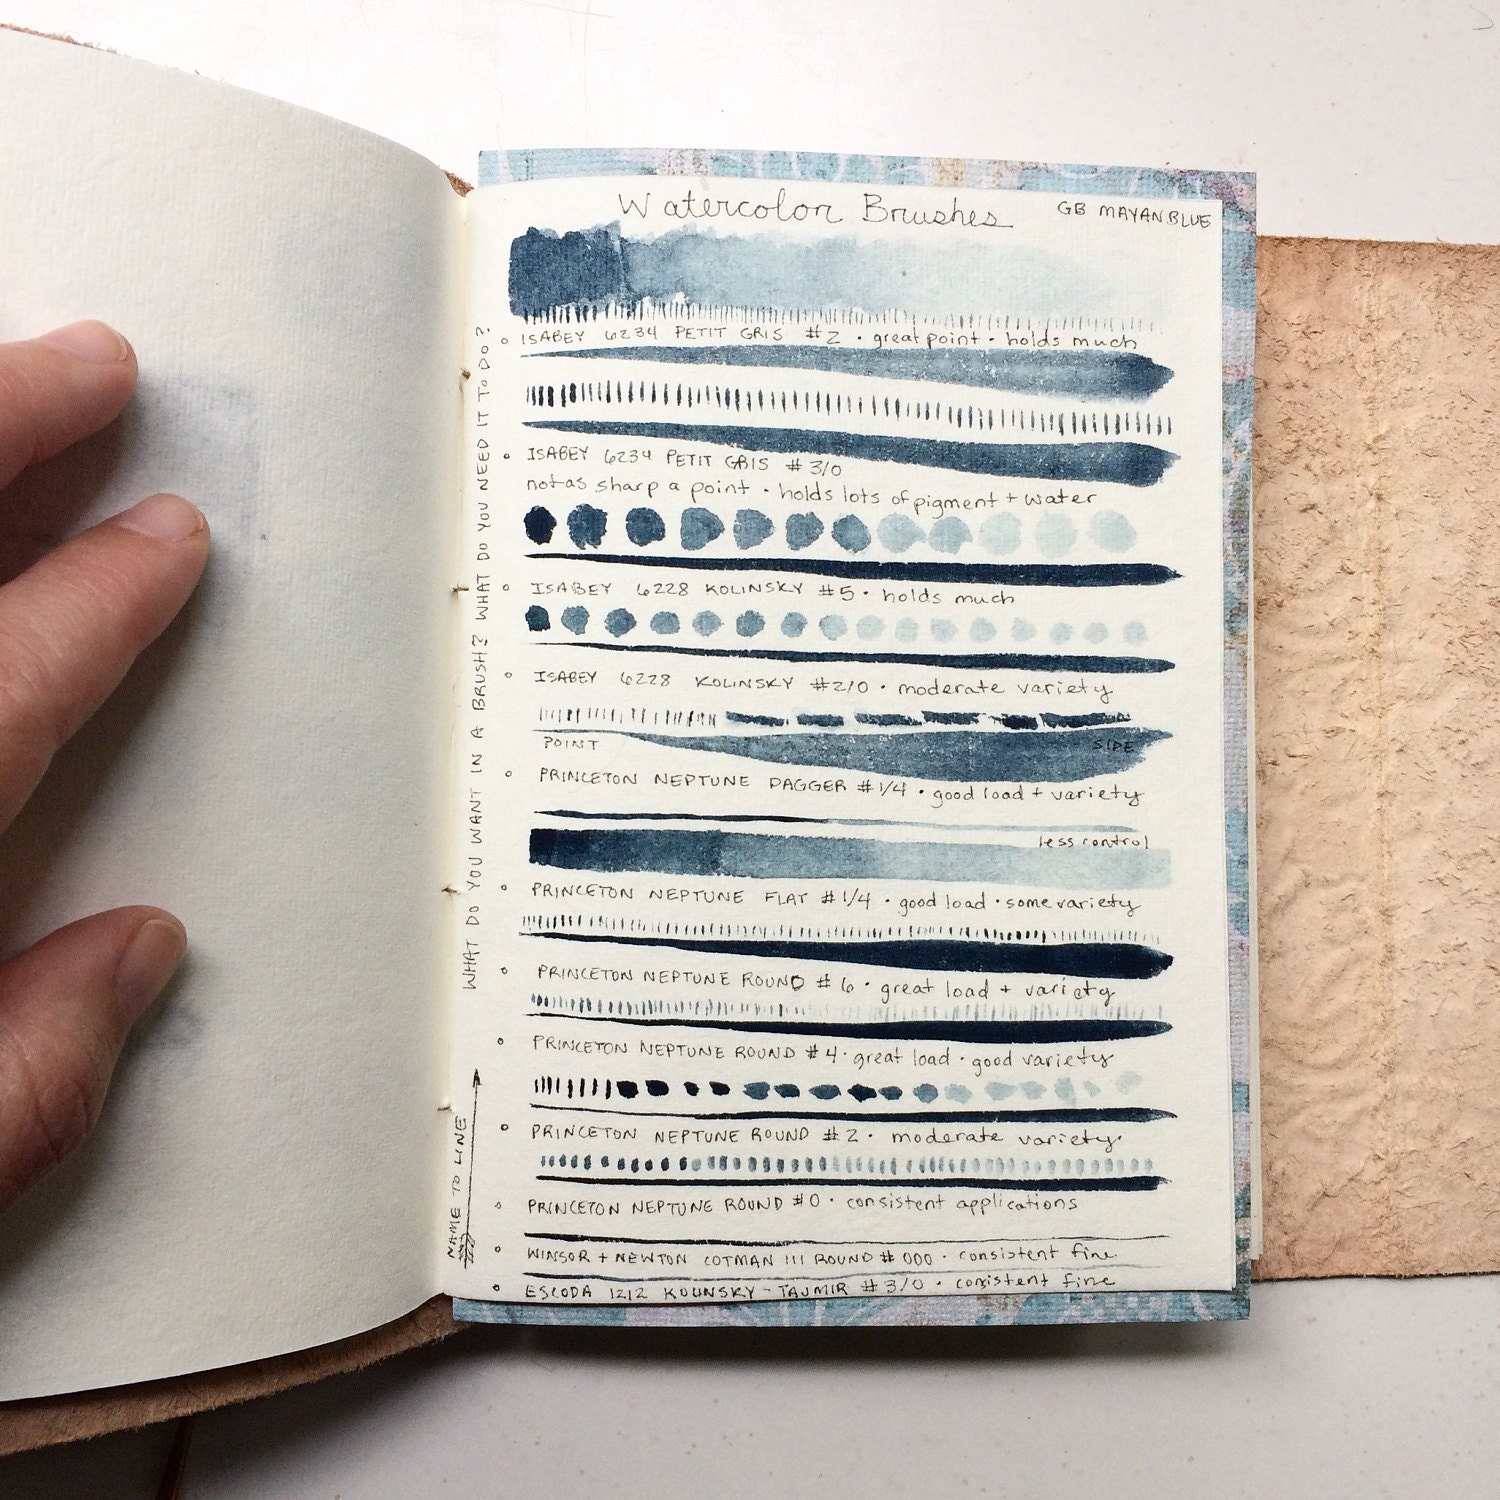 Watercolor Brushes
GB MAYAN BLUE
ISABEY 6234 PETIT GRIS #2 · great point · holds much
ISABEY 6234 PETIT GRIS #3/0
not as sharp a point · holds lots of pigment + water
ISABEY 6228 KOLINSKY #5 · holds much
ISABEY 6228 KOLINSKY #2/0 · moderate variety
POINT
SIDE
PRINCETON NEPTUNE DAGGER #1/4 · good load + variety
less control
PRINCETON NEPTUNE FLAT #1/4 · good load · some variety
PRINCETON NEPTUNE ROUND #6 · great load + variety
PRINCETON NEPTUNE ROUND #4 · great load · good variety
PRINCETON NEPTUNE ROUND #2 · moderate variety
PRINCETON NEPTUNE ROUND #0 · consistent applications
WINSOR + NEWTON COTMAN 111 ROUND #000 · consistent fine
ESCODA 1212 KOLINSKY-TAJMIR #3/0 · consistent fine
WHAT DO YOU WANT IN A BRUSH? WHAT DO YOU NEED IT TO DO?
NAME TO LINE